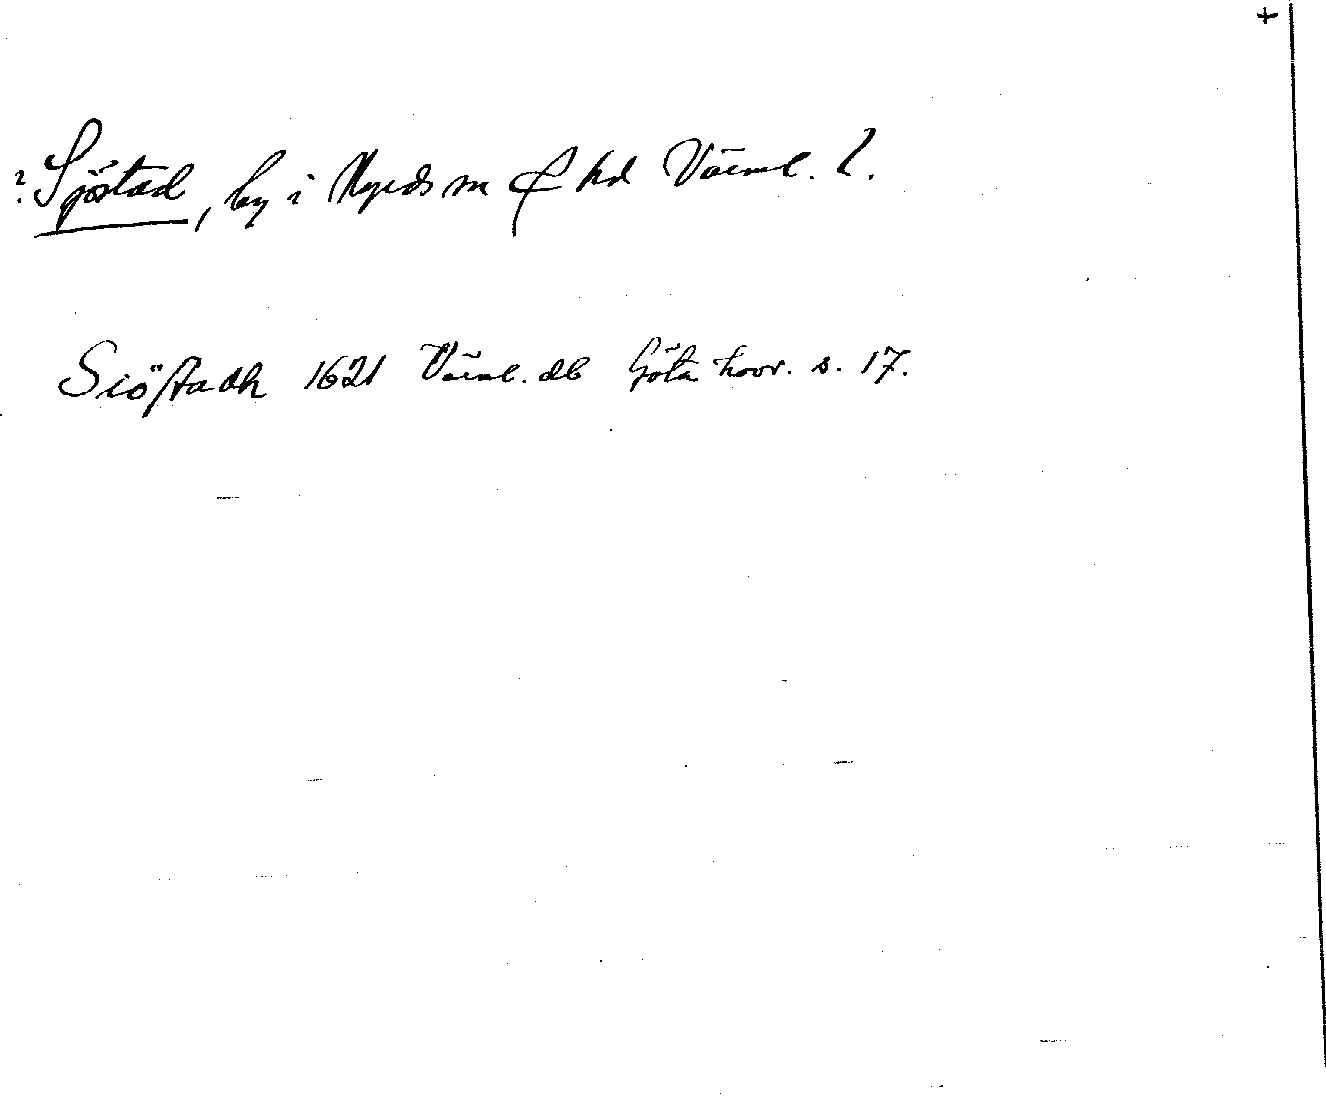 +
? Sjöstad, by i Nyeds sn hd Värml. l.
Siöstadh 1621 Värml. db Göta hovr. s. 17.